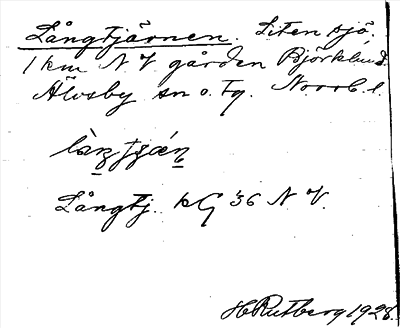 Långtjärnen. Liten sjö.
1 km N V gården Björklund.
Älvsby sn o. tg. Norrb. l.
Långtj. kG 36 N V.
H Rutberg 1928.